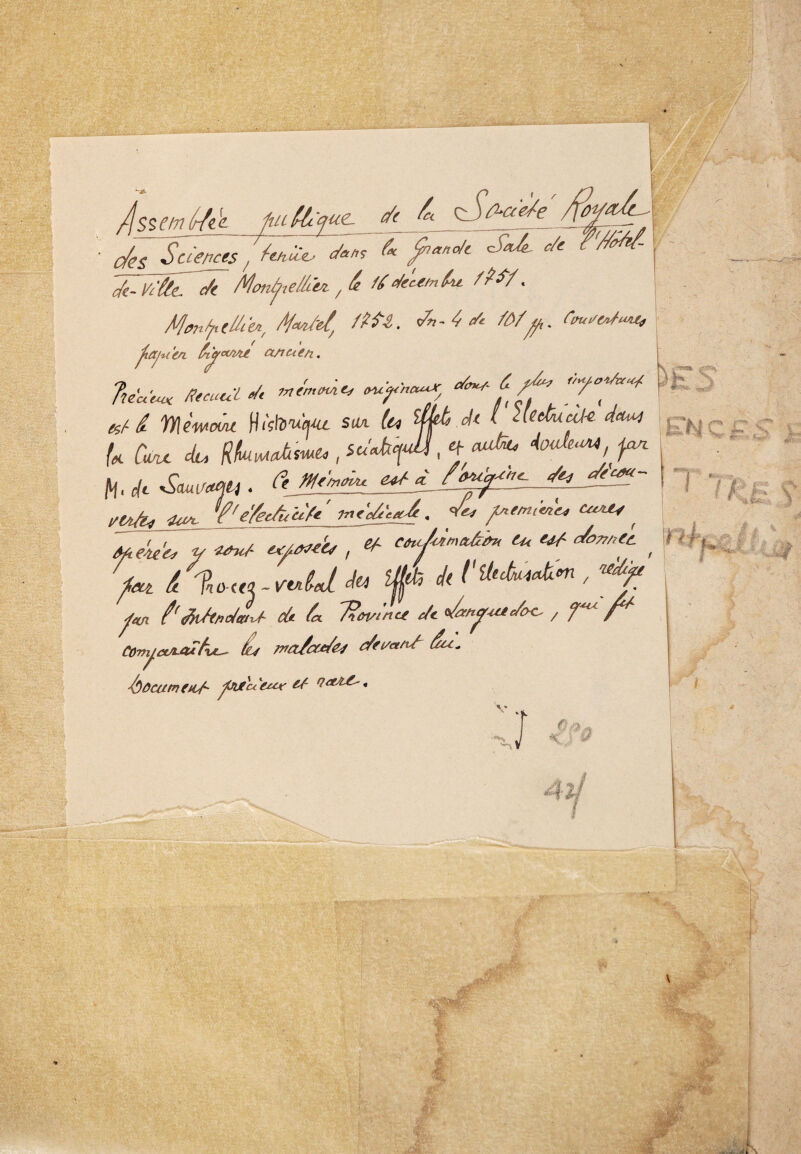 Assemblée publique de la Société Royale
des Sciences, tenüe dans la Grande Sale de l'Hôtel-
de-Ville de Montpellier, le 16 décembre 1751.
Montpellier, Martel, 1752. In-4 de 101 pp. Couvertures
papier bigarré ancien.
Précieux Recueil de mémoires originaux, dont le plus important
est le Mémoire Historique sur les Effets de l'Electricité dans
la Cure des Rhumatismes, sciatiques, et autres douleurs, par
M. de Sauvages. Ce Mémoire est à l'origine des décou-
vertes sur l'électricité médicale. Les premières cures
opérées y sont exposées, et confirmation en est donnée
par le Procez-verbal des Effets de l'Electrisation, rédigé
par l'Intendant de la Province de Languedoc, qui fit
comparaître les malades devant lui.
Document précieux et rare.
290
42/
DES
ENCES E
T TRES
ntpellier